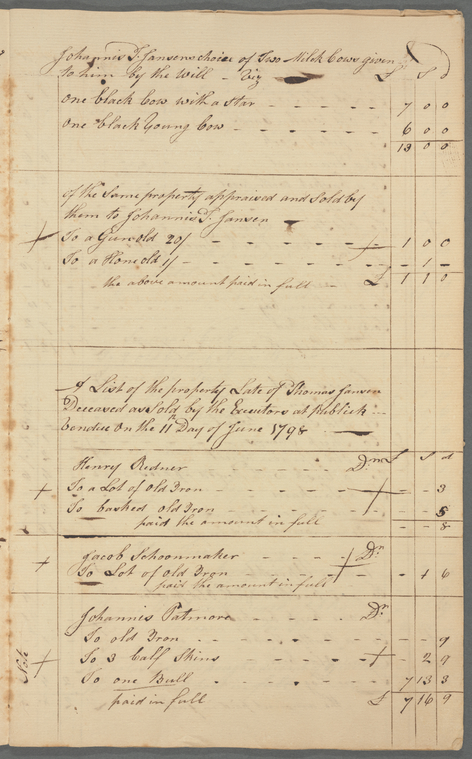 Johannis T. Jansens choice of Two Milch Cows given
to him by the Will - Viz £ S d
One black Cow with a Star - - - - - 7 0 0
One black Young Cow - - - - - 6 0 0
13 0 0
Of the Same property appraised and Sold by
them to Johannis T. Jansen
To a Gun old 20/ - - - - - 1 0 0
To a Hone old 1/ - - - - - - 1 -
the above amount paid in full - £ 1 1 0
A List of the property Late of Thomas Jansen
Deceased as Sold by the Executors at Publick
Vendue On the 11th Day of June 1798
Henry Ridner Dr £ S d
To a Lot of Old Iron - - - - - - 3
To bashed old Iron - - - - - - 5
paid the amount in full - - 8
Jacob Schoonmaker - - - - Dr
To Lot of Old Iron - - - - - 1 6
paid the amount in full
Johannis Patmore Dr
To old Iron - - - - - - 9
Note To 3 Calf Skins - - - - - 2 9
To one Bull - - - - - 7 13 3
paid in full £ 7 16 9